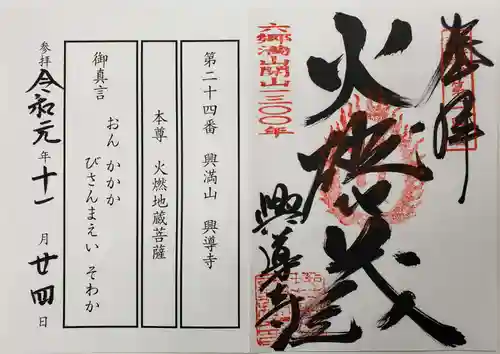 奉拝
火燃地蔵
六郷満山開山一三〇〇年
興導寺
第二十四番　興満山　興導寺
本尊　火燃地蔵菩薩
御真言
おん　かかか
びさんまえい　そわか
参拝　令和元年十一月廿四日